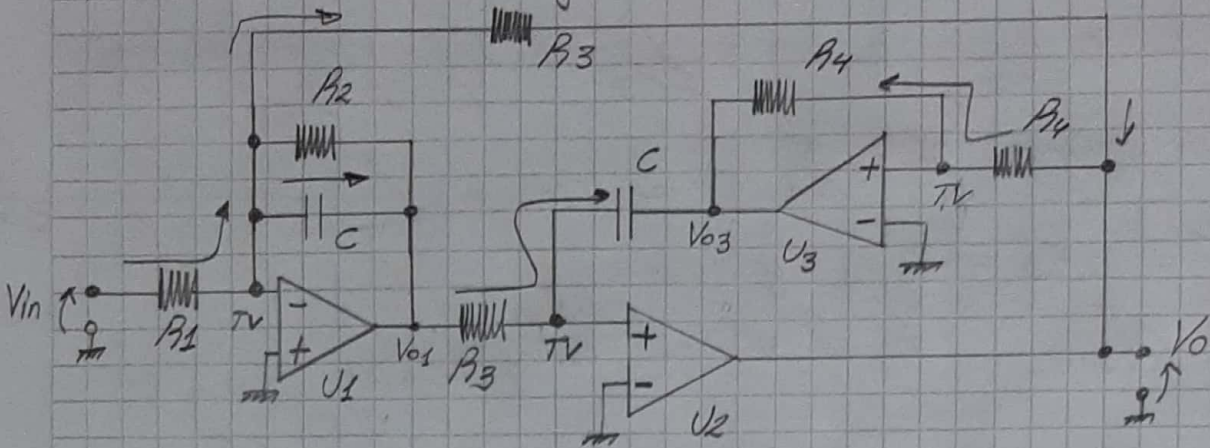 R3
R4
R2
R4
C
+
TV
-
C
Vo3
U3
Vin
R1
TV
-
+
U1
Vo1
R3
TV
+
-
U2
Vo